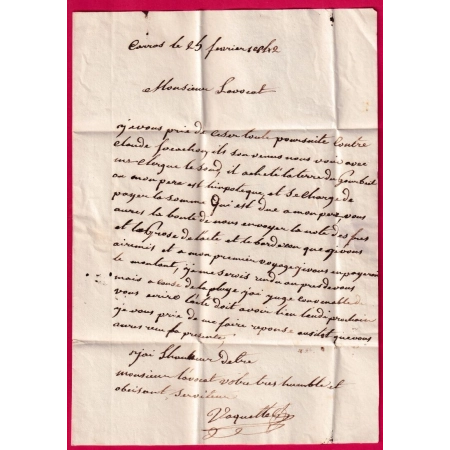 le 25 fevrier 1842
Monsieur Lavocat
je vous prie de cesser toute poursuite contre
claude ils son venus nous voir avec
mr le sond, il achete la terre du
ou mon pere est hipoteque, et se charge de
payer la somme qui est due a mon pere, vous
aures la bonté de nous envoyer la note des frais
et la grose de lacte et le bordereau que je vous
ai remis et a mon premier voyage je vous en payerai
le montant, je me serois rendu au pres de vous
mais a cause de la pluye jai juge convenable de
vous ecrire lacte doit avoir lieu landi prochain
je vous prie de me faire reponse ausitot que vous
aures reçu la presente
jai lhonneur detre
monsieur lavocat votre tres humble et
obeisant serviteur
Vaquette